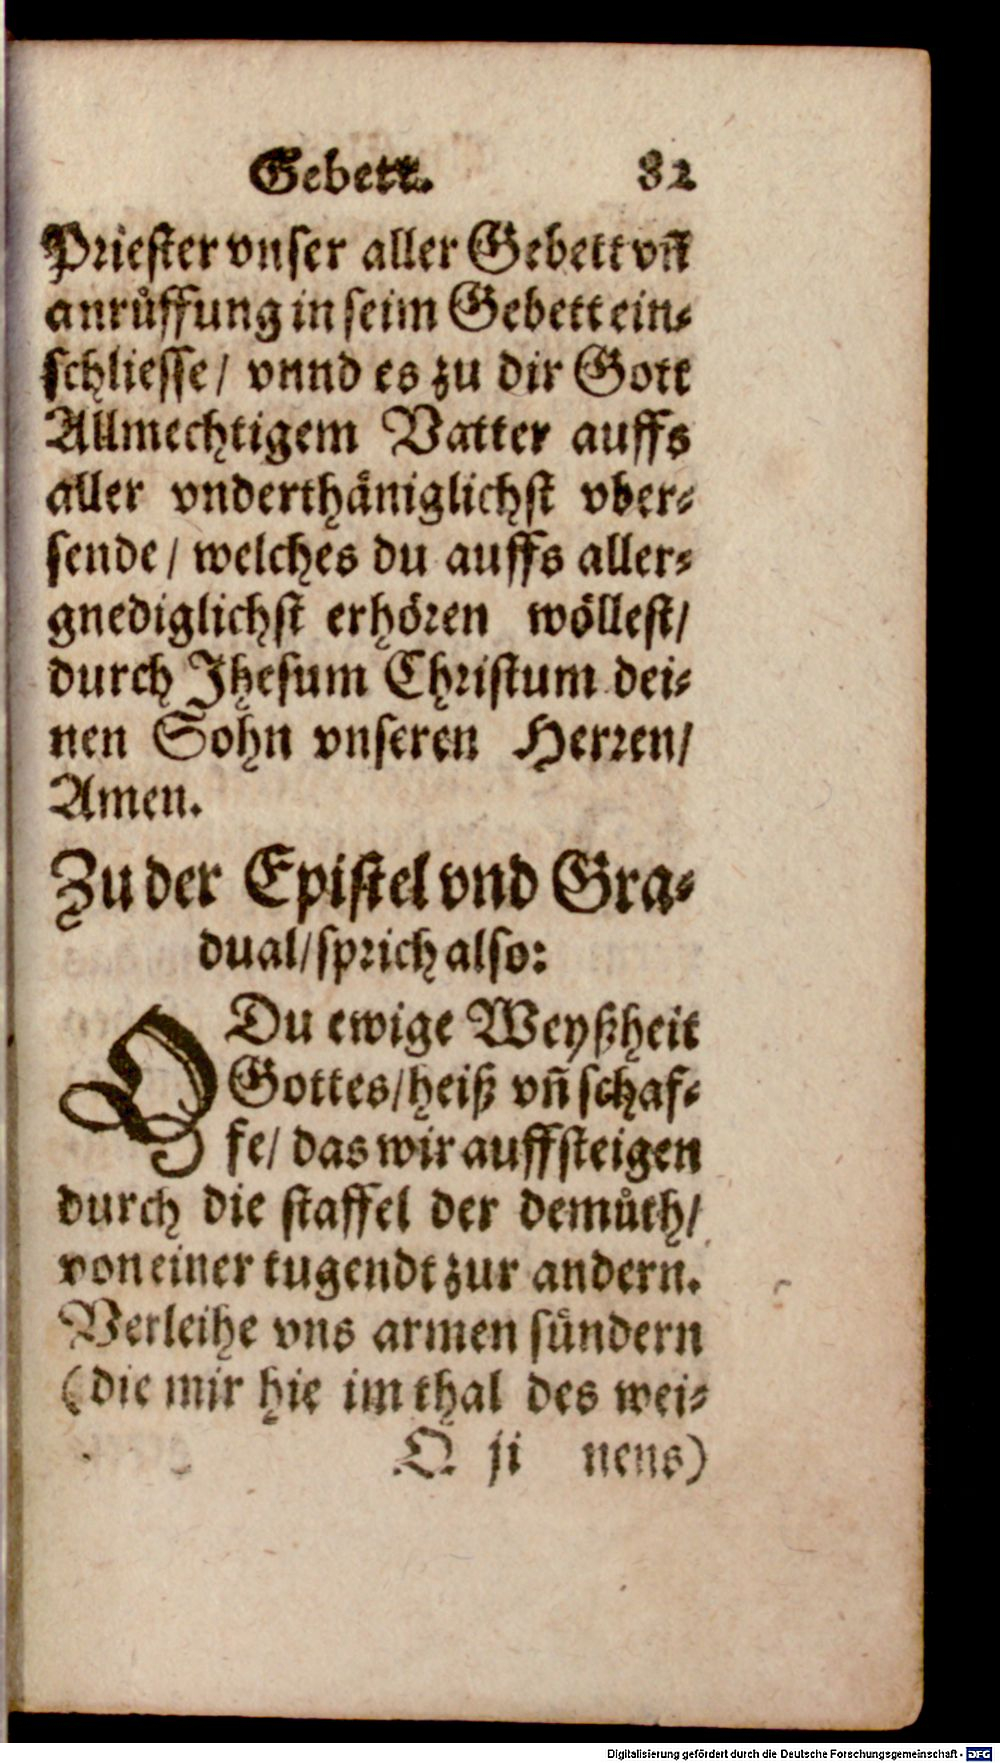 Gebett. 82
Priester vnser aller Gebett vñ
anrůffung in seim Gebett ein-
schliesse/ vnnd es zu dir Gott
Allmechtigem Vatter auffs
aller vnderthäniglichst vber-
sende/ welches du auffs aller-
gnediglichst erhören wöllest/
durch Jhesum Christum dei-
nen Sohn vnseren Herren/
Amen.
Zu der Epistel vnd Gra-
dual/ sprich also:
O Du ewige Weyßheit
Gottes/ heiß vñ schaf-
fe/ das wir auffsteigen
durch die staffel der demůth/
von einer tugendt zur andern.
Verleihe vns armen sündern
(die mir hie im thal des wei-
Q ij nens)
Digitalisierung gefördert durch die Deutsche Forschungsgemeinschaft - DFG